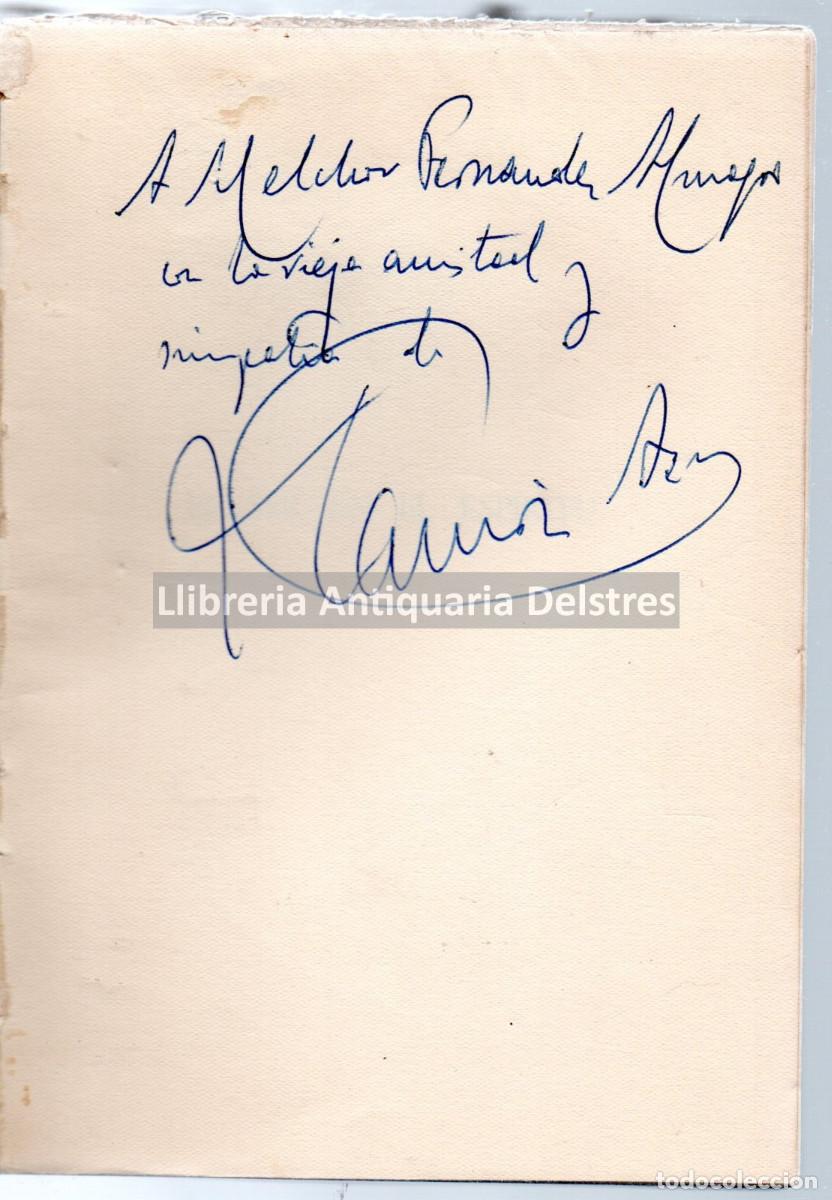 A Melchor Fernandez Almagro
con la vieja amistad y
simpatía de
Ramón
Llibreria Antiquaria Delstres
todocolección